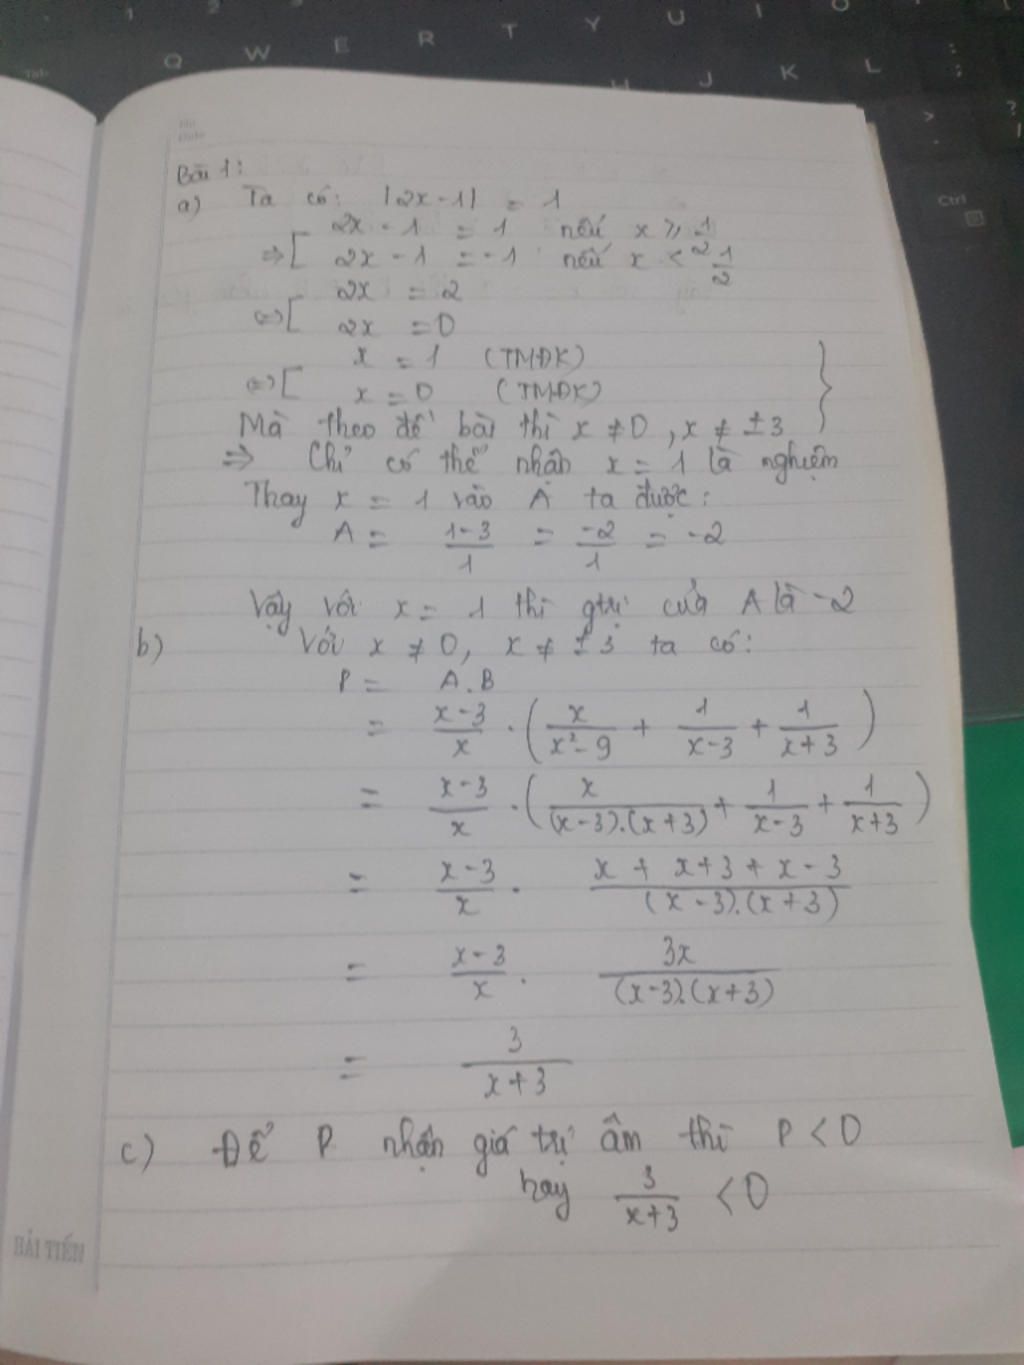 1 2 3
Q W E R T Y U I O
H J K L : ;
Tab
> . ? /
Ctrl
Bài 1:
a) Ta có: |2x-1| = 1
2x - 1 = 1 nếu x ≥ 1/2
=> [ 2x - 1 = -1 nếu x < 1/2
2x = 2
<=> [ 2x = 0
x = 1 (TMĐK)
<=> [ x = 0 (TMĐK) }
Mà theo đề bài thì x ≠ 0, x ≠ ±3
=> Chỉ có thể nhận x = 1 là nghiệm
Thay x = 1 vào A ta được:
A = (1-3)/1 = -2/1 = -2
Vậy với x = 1 thì gtrị của A là -2
b) Với x ≠ 0, x ≠ ±3 ta có:
P = A.B
= (x-3)/x . ( x/(x²-9) + 1/(x-3) + 1/(x+3) )
= (x-3)/x . ( x/((x-3).(x+3)) + 1/(x-3) + 1/(x+3) )
= (x-3)/x . (x + x+3 + x-3)/((x-3).(x+3))
= (x-3)/x . 3x/((x-3).(x+3))
= 3/(x+3)
c) Để P nhận giá trị âm thì P < 0
hay 3/(x+3) < 0
HẢI TIẾN